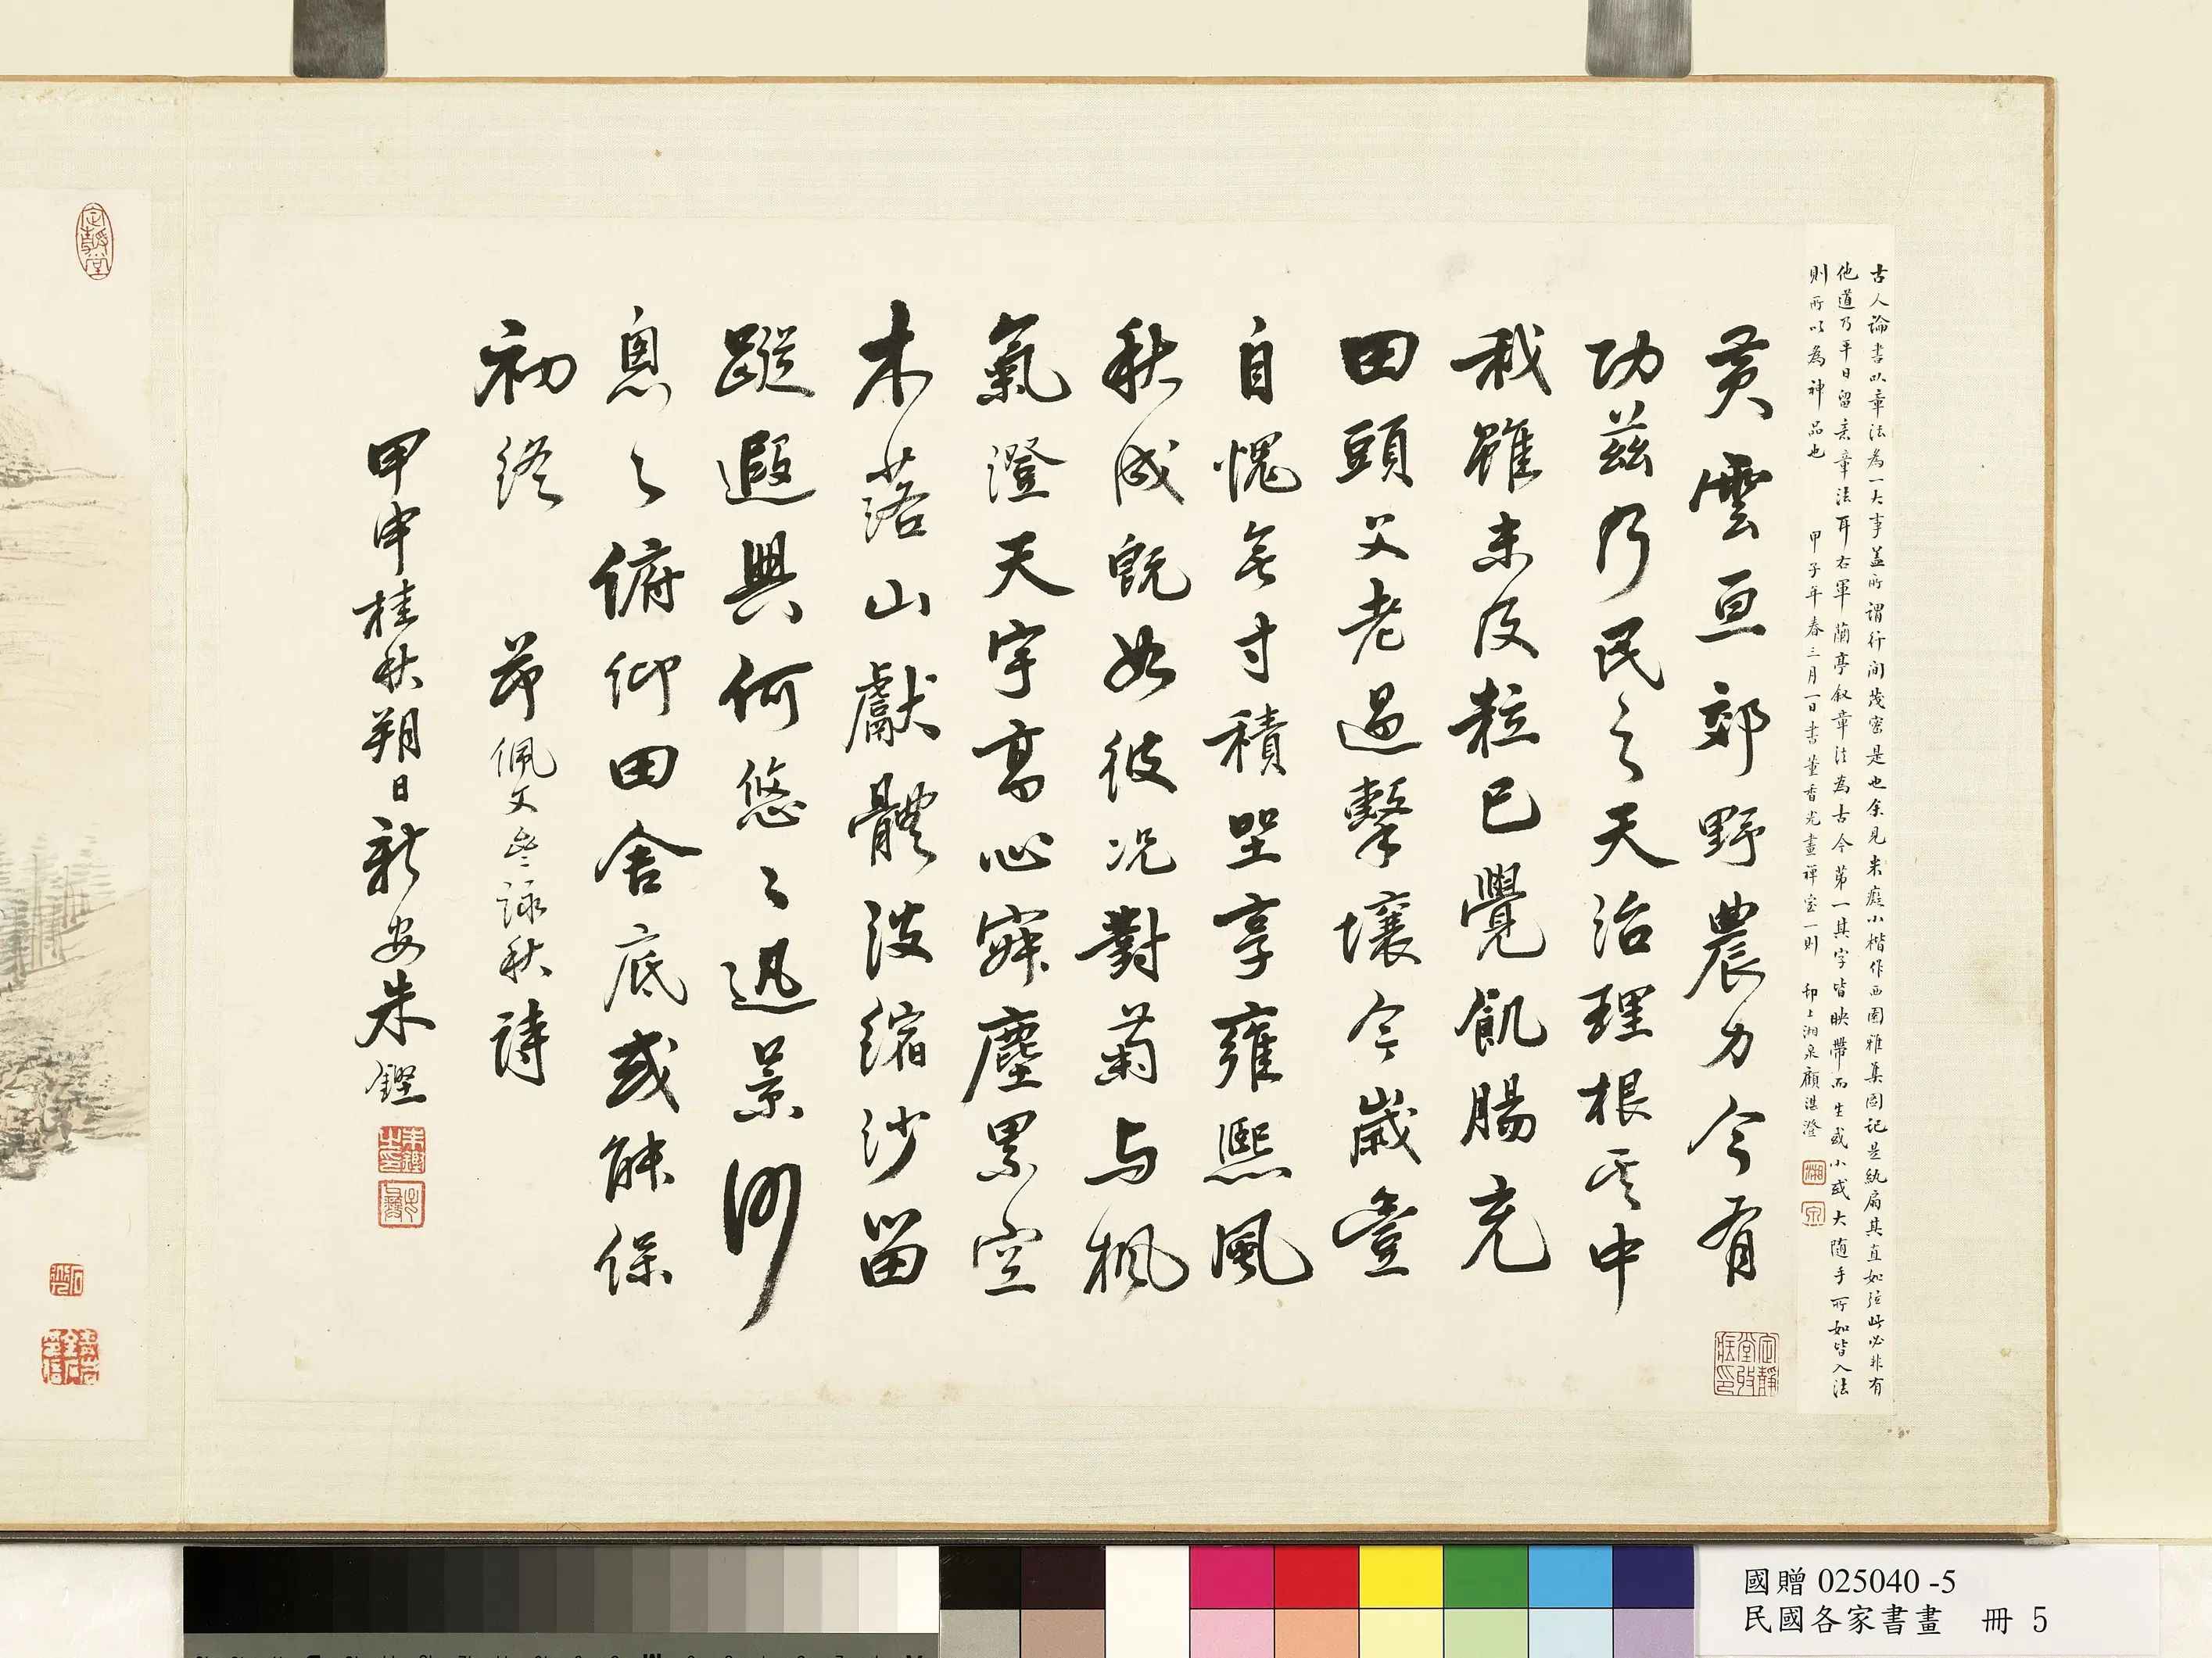 古人論書以章法為一大事蓋所謂行間茂密是也余見米癡小楷作西園雅集圖記是紈扇其直如弦此必非有
他道乃平日留意章法耳右軍蘭亭叙章法為古今第一其字皆映帶而生或小或大隨手所如皆入法
則所以為神品也 甲子年春三月一日書董香光畫禪室一則 邗上湘泉顧湛澄
黃雲亘郊野農力今有
功茲乃民之天治理根其中
我雖未及粒已覺飢腸充
田頭父老過擊壤今歲豐
自愧無寸積坐享雍熙風
秋成既如彼況對菊与楓
氣澄天宇高心寂塵累空
木落山獻體波縮沙留
蹤遐興何悠々迅景何
悤々俯仰田舍底或能保
初終 節佩文齋詠秋詩
甲申桂秋朔日新安朱鏗
定靜堂
定靜堂攷藏印
朱鏗之印
國贈 025040 -5
民國各家書畫 冊 5